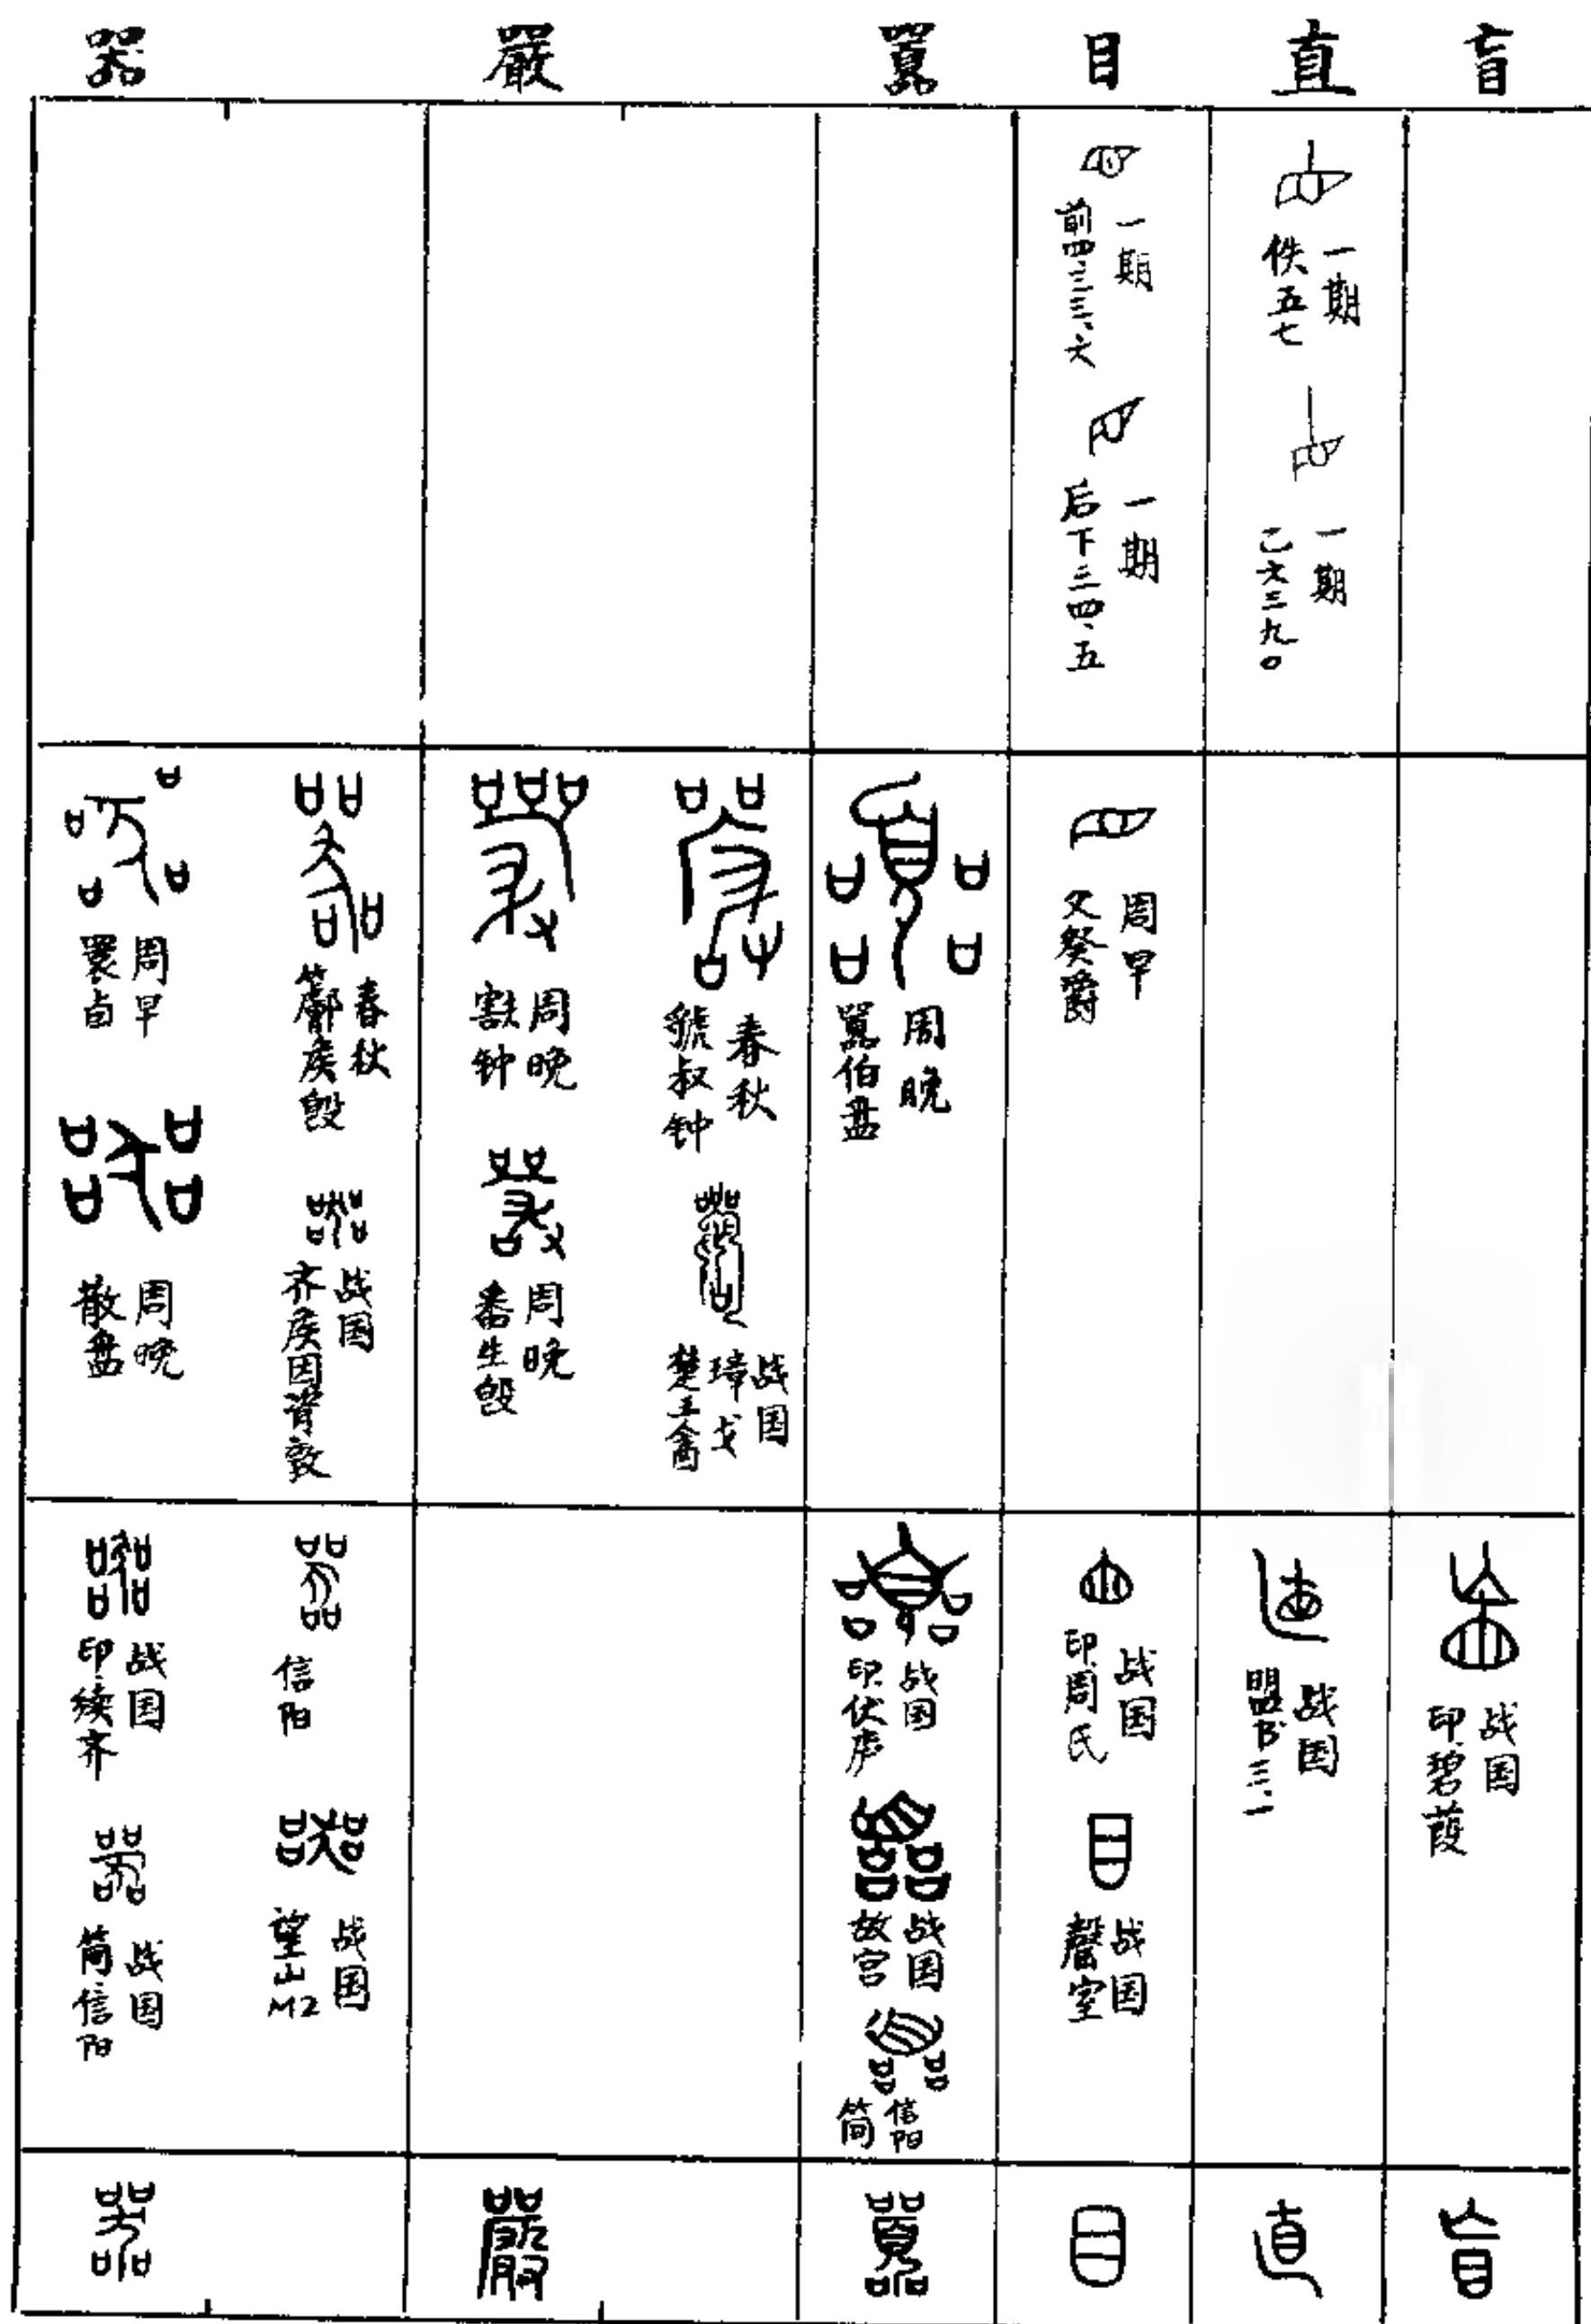 器 嚴 囂 目 直 盲
一期
前四.三三.六
一期
后下三四.五
一期
佚五七
一期
乙六三九〇
周早
睘卣
周晚
散盘
春秋
侯𣪘
战国
齐侯因𬱖敦
周晚
钟
周晚
番生𣪘
春秋
虢叔钟
战国
楚王酓
璋戈
周晚
囂伯盘
周早
父癸爵
战国
印续齐
战国
简信阳
信阳
战国
望山M2
战国
印.伏庐
战国
故宫
信阳
简
战国
印.周氏
战国
声室
战国
盟书三.一
战国
印.碧葭
器 嚴 囂 目 直 盲